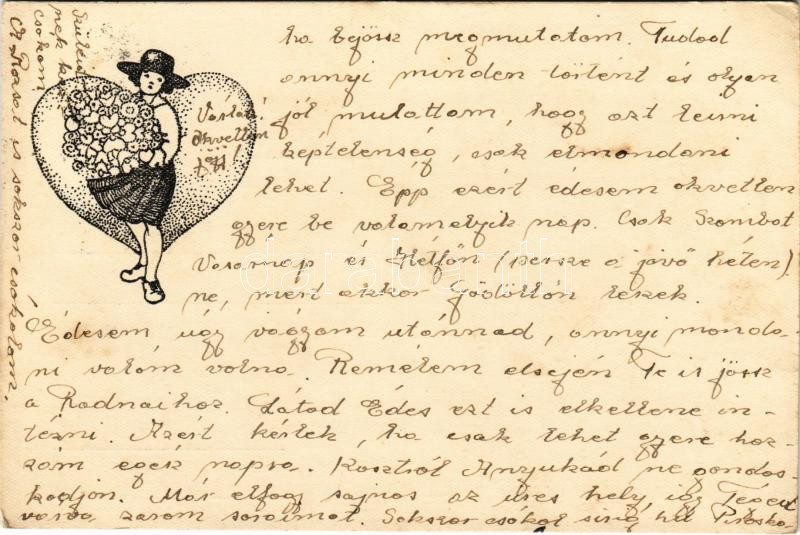 ha bejösz megmutatom. Tudod
annyi minden történt és olyan
jól mulattam, hogy azt leirni
képtelenség, csak elmondani
lehet. Épp ezért édesem okvetlen
gyere be valamelyik nap. Csak Szombat
Vasarnap és Hétfőn (persze a jövő héten)
ne, mert akkor Gödöllőn leszek.
Édesem, úgy vágyom utánnad, annyi monda-
ni valóm volna. Remélem elsején Te is jössz
a Radnaihoz. Látod Édes ezt is elkellene in-
tézni. Azért kérlek, ha csak lehet gyere hoz-
zám egész napra. Kosztról Anyukád ne gondos-
kodjon. Már elfogy sajnos az üres hely, igy Téged
várva zárom soraimat. Sokszor csókol sirig hű Piroska
okvetlen
Szüleid-
nek kéz
csókom
A Rózsát is sokszor csókolom.
darabanth